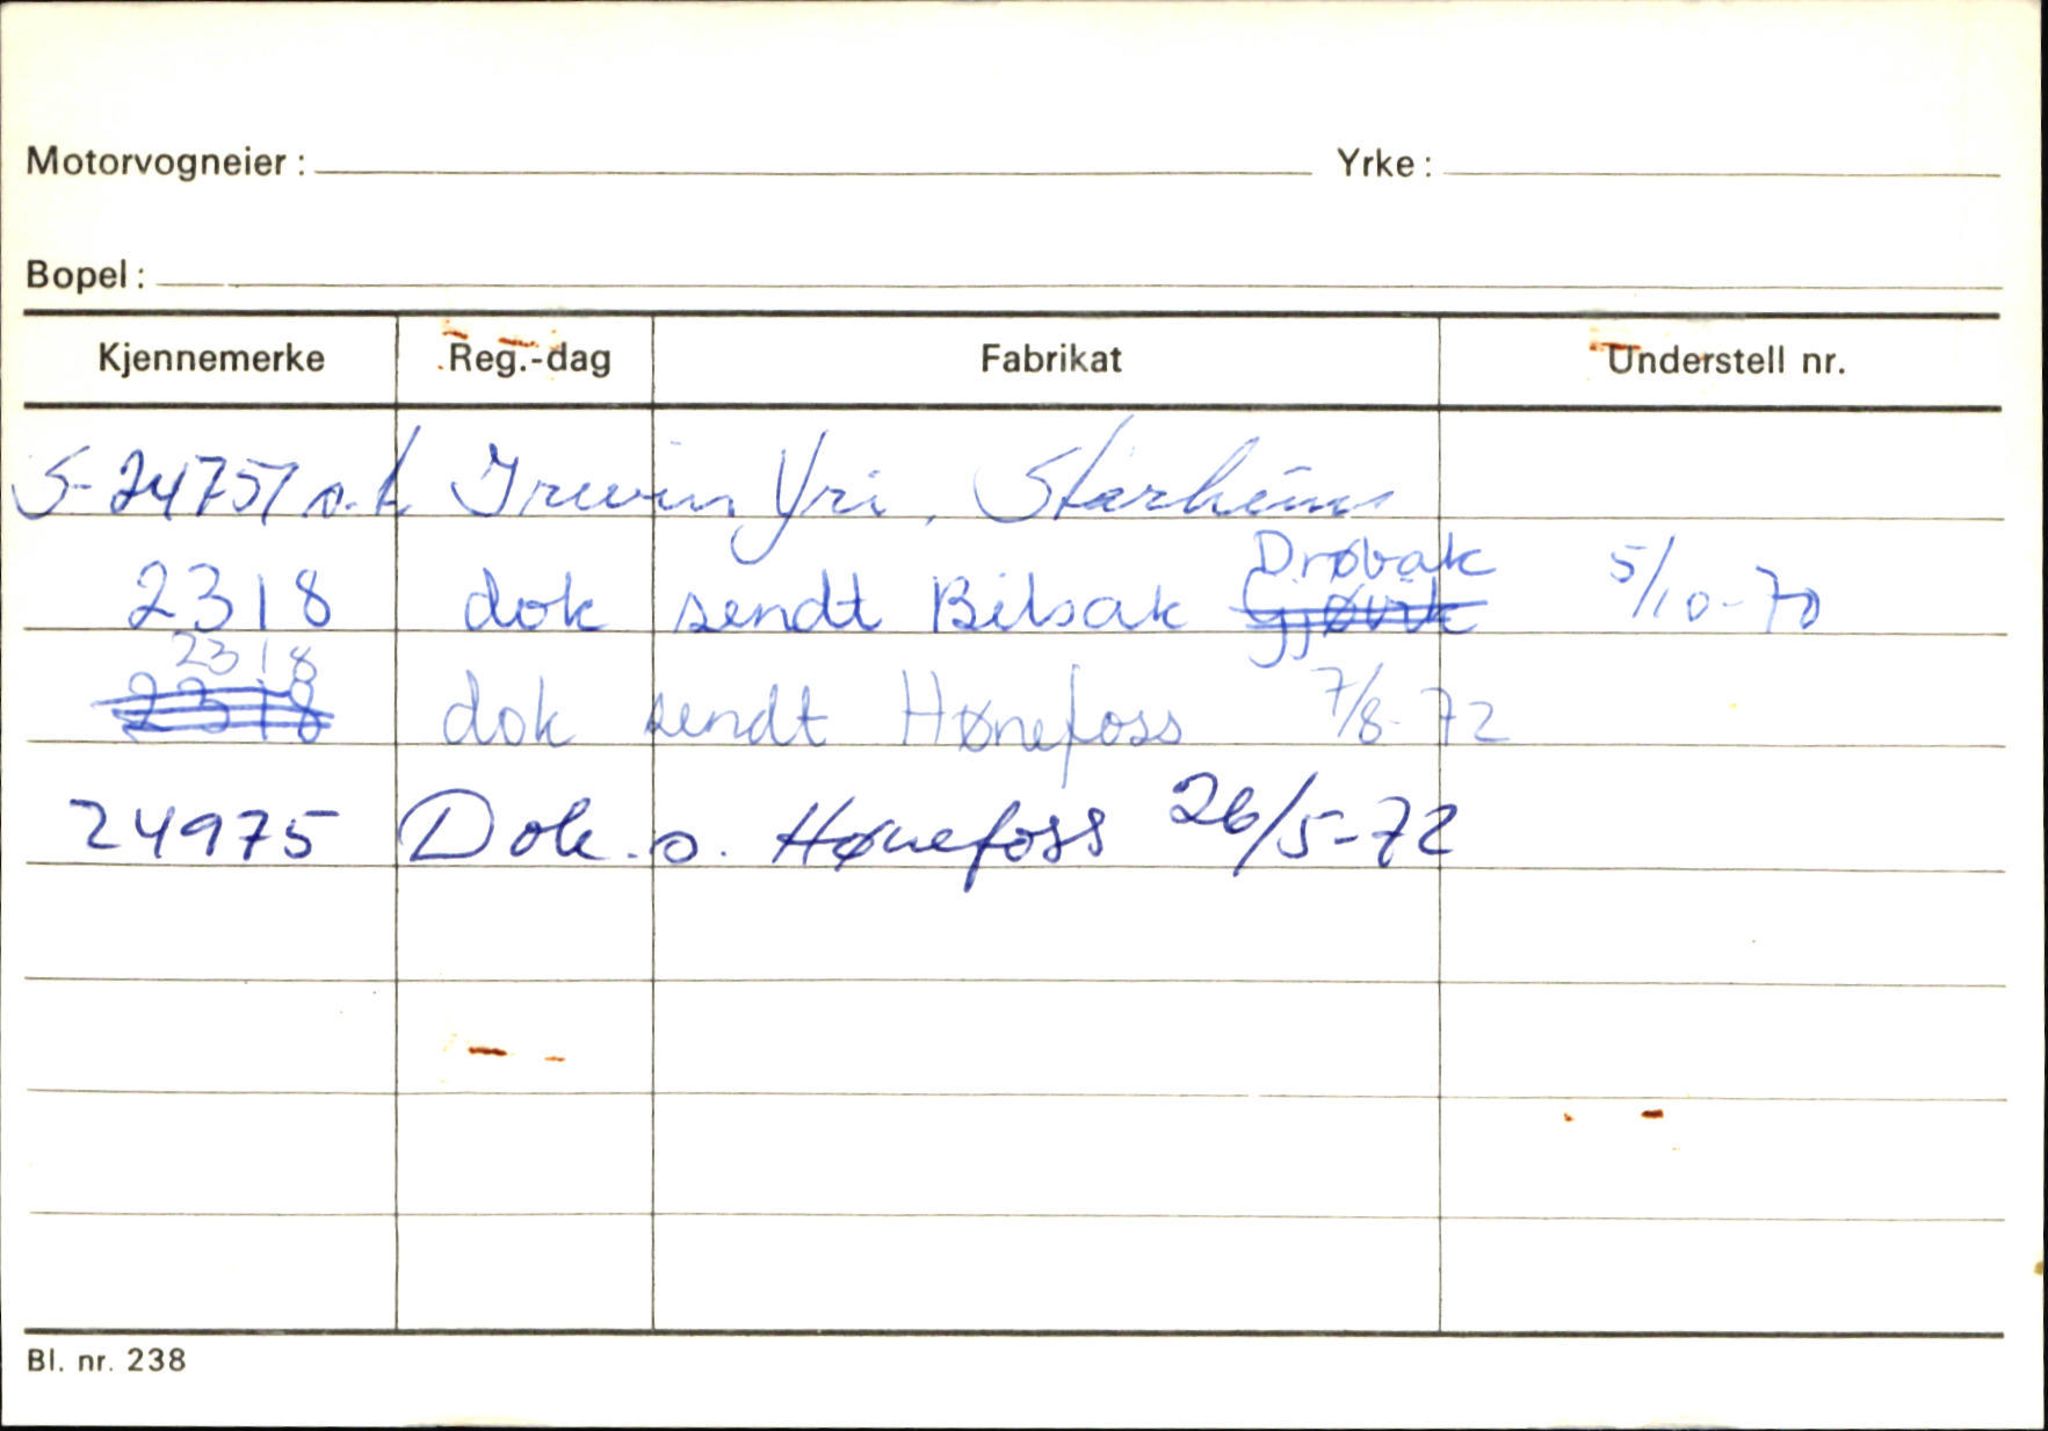 Motorvogneier: Yrke:
Bopel:
Kjennemerke Reg.-dag Fabrikat Understell nr.
S-24757 o.k Irwin Yri, Starheim
2318 dok sendt Bilsak Drøbak Gjøvik 5/10-70
2318
2318 dok sendt Hønefoss 7/8-72
24975 Dok. s. Hønefoss 26/5-72
Bl. nr. 238